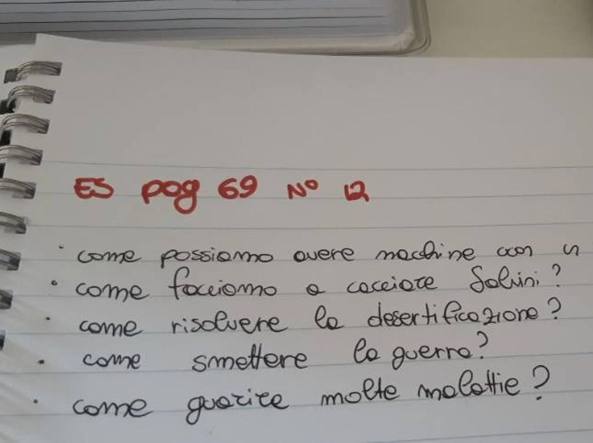 ES pag 69 N° 12
· come possiamo avere macchine con
· come facciamo a cacciare Salvini?
· come risolvere la desertificazione?
· come smettere la guerra?
· come guarire molte malattie?